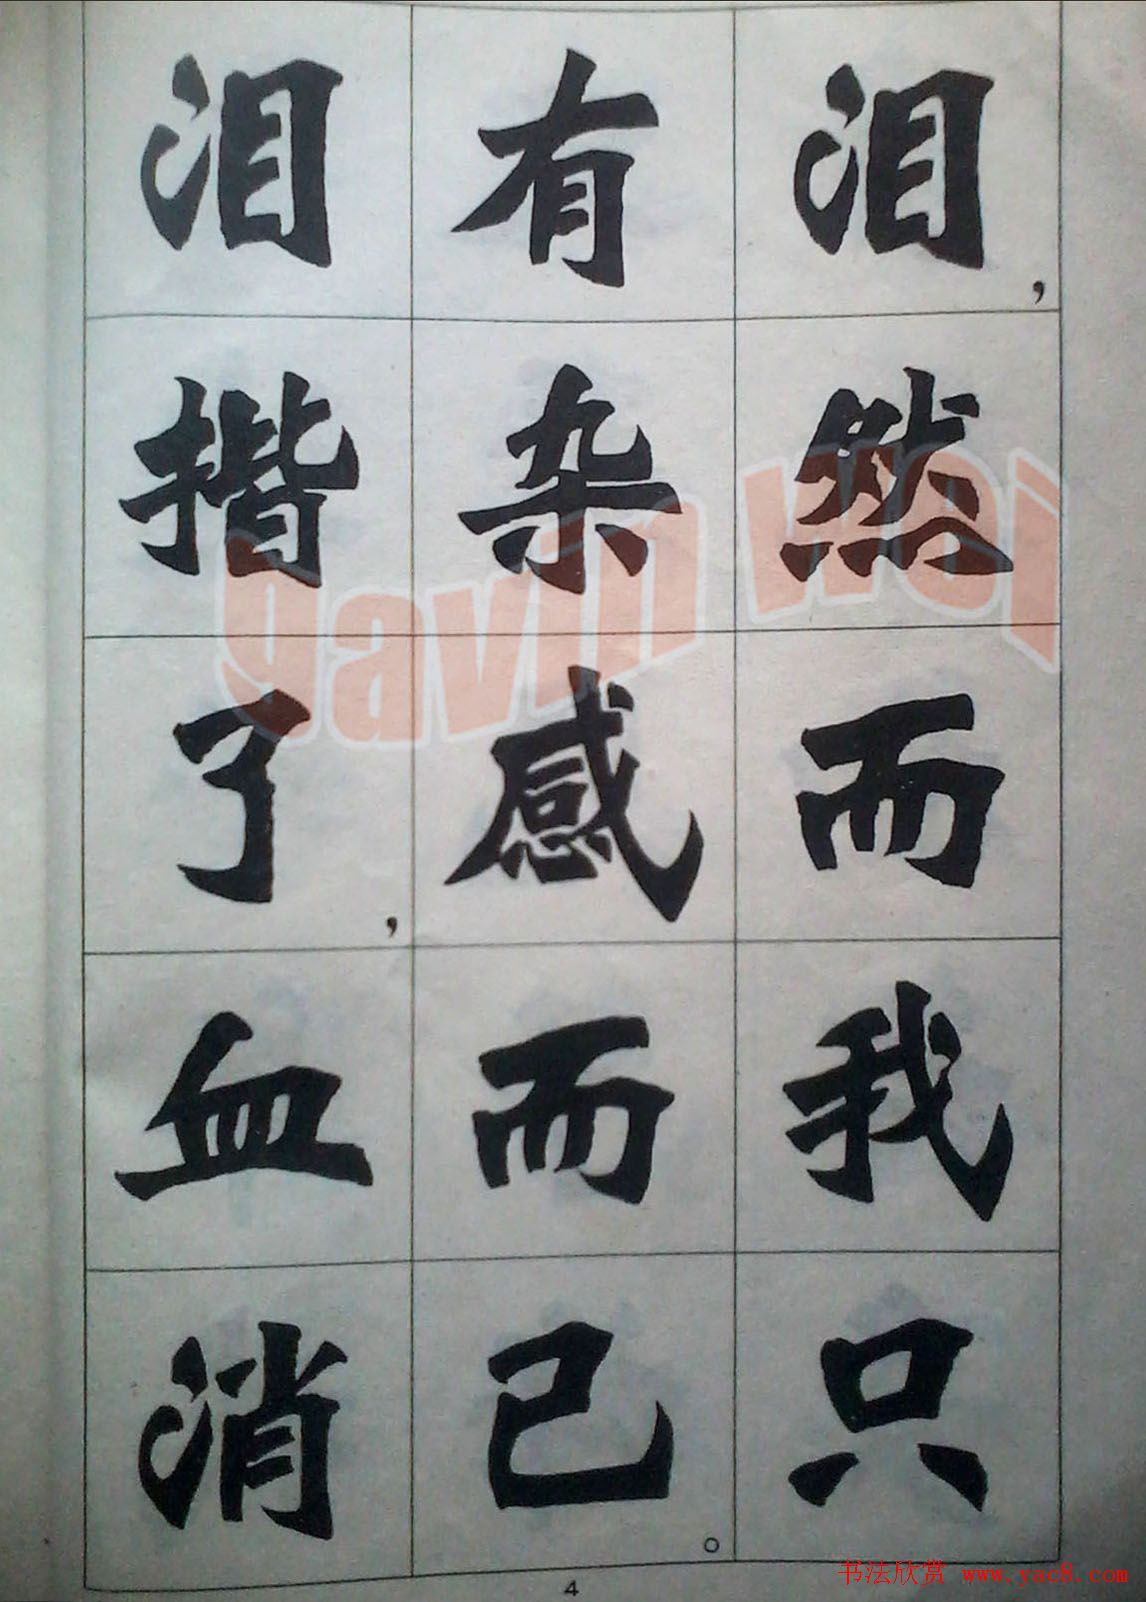 泪，然而我只
有杂感而已。
泪揩了，血消
gavin wei
4
书法欣赏 www.yac8.com